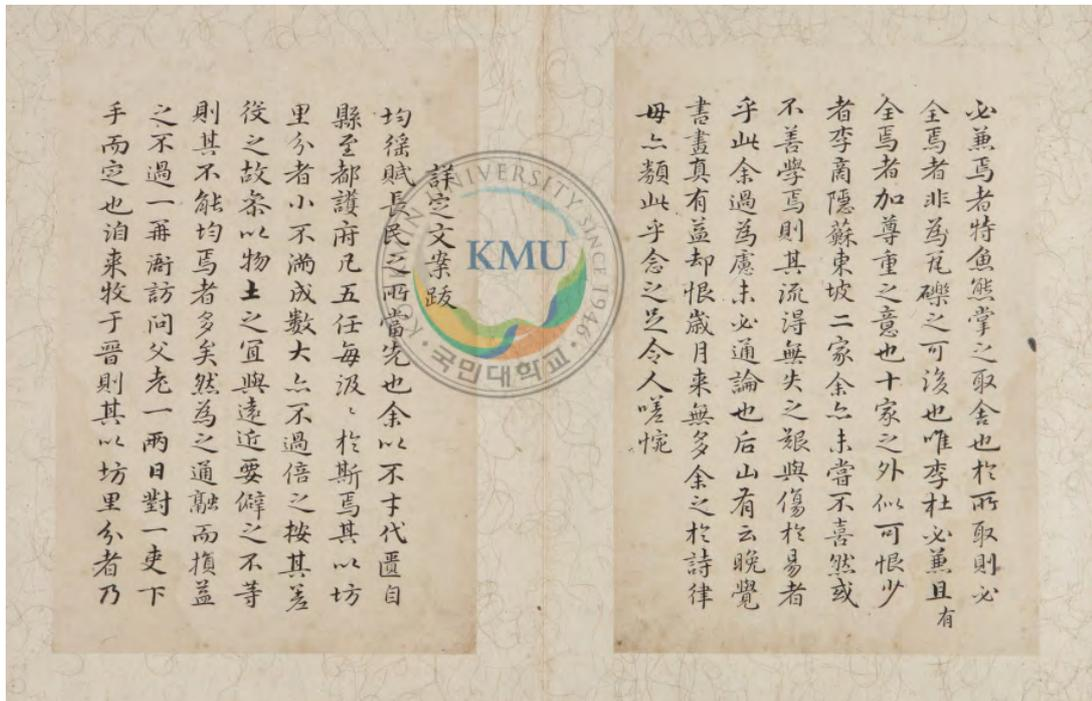 必兼焉者特魚熊掌之取舍也於所取則必
全焉者非為瓦礫之可後也唯李杜必兼且有
全焉者加尊重之意也十家之外似可恨少
者李商隱蘇東坡二家余亦未嘗不喜然或
不善學焉則其流得無失之艱與傷於易者
乎此余過為慮未必通論也后山有云晚覺
書畫真有益却恨歲月来無多余之於詩律
毋亦類此乎念之足令人嗟惋
詳定文案跋
均徭賦長民之所當先也余以不才代匱自
縣至都護府凡五任每汲〻於斯焉其以坊
里分者小不滿成數大亦不過倍之按其差
役之故叅以物土之宜與遠近要僻之不等
則其不能均焉者多矣然為之通融而損益
之不過一再衙訪問父老一兩日對一吏下
手而定也洎来牧于晉則其以坊里分者乃
KOOKMIN UNIVERSITY SINCE 1946
KMU
국민대학교